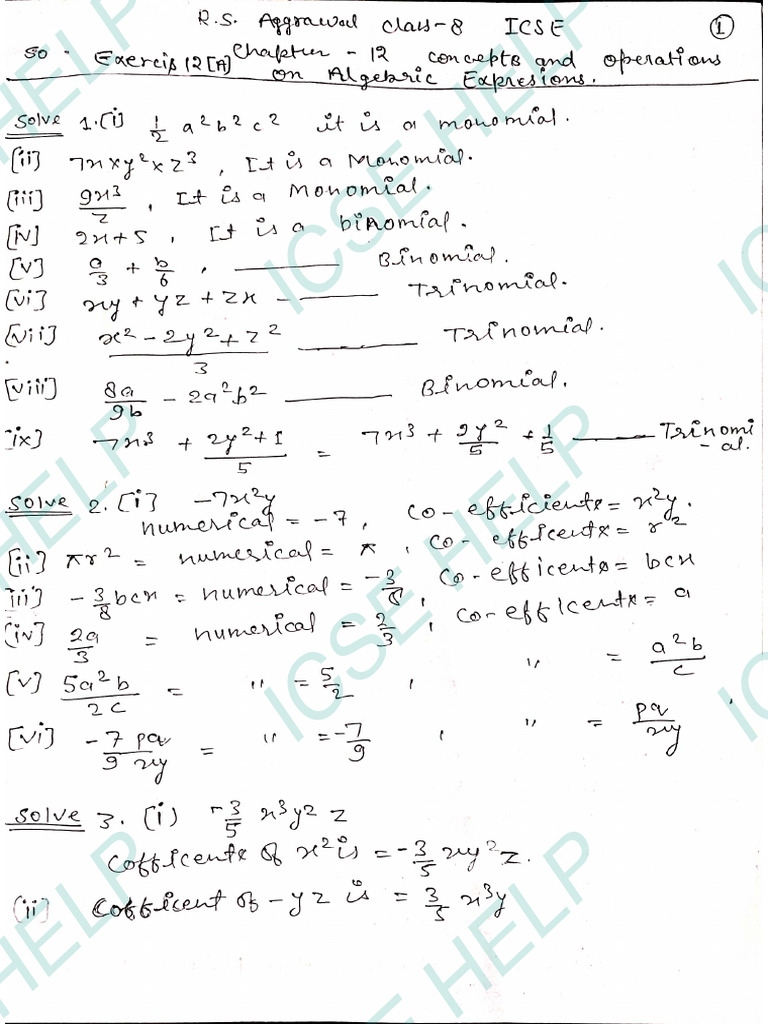 R.S. Aggrawal Class-8 ICSE ①
50 - Exercis 12[A] Chapter - 12 concepts and operations
on Algebric Expresions.
Solve 1.(i) 1/2 a²b²c² it is a monomial.
[ii] 7x×y²×z³, It is a Monomial.
[iii] 9x³/z, It is a Monomial.
[iv] 2x+5, It is a binomial.
[v] a/3 + b/6, ——— Binomial.
[vi] xy + yz + zx - ——— Trinomial.
[vii] x² - 2y² + z²/3 ——— Trinomial.
[viii] 8a/9b - 2a²b² ——— Binomial.
ix] 7x³ + 2y²+1/5 = 7x³ + 2y²/5 + 1/5 ——— Trinomi
-al.
Solve 2.[i] -7x²y
numerical = -7, co-efficients = x²y.
[ii] πr² = numerical = π, co-efficents = r²
iii] -3/8 bcx = numerical = -3/8, co-efficents = bcx
[iv] 2a/3 = numerical = 2/3, co-efficents = a
[v] 5a²b/2c = " = 5/2, " = a²b/c
[vi] -7/9 pq/xy = " = -7/9, " = pq/xy
Solve 3. (i) -3/5 x³y² z
Cofficents of x² is = -3/5 xy²z.
(ii) Cofficent of -yz is = 3/5 x³y
ICSE HELP